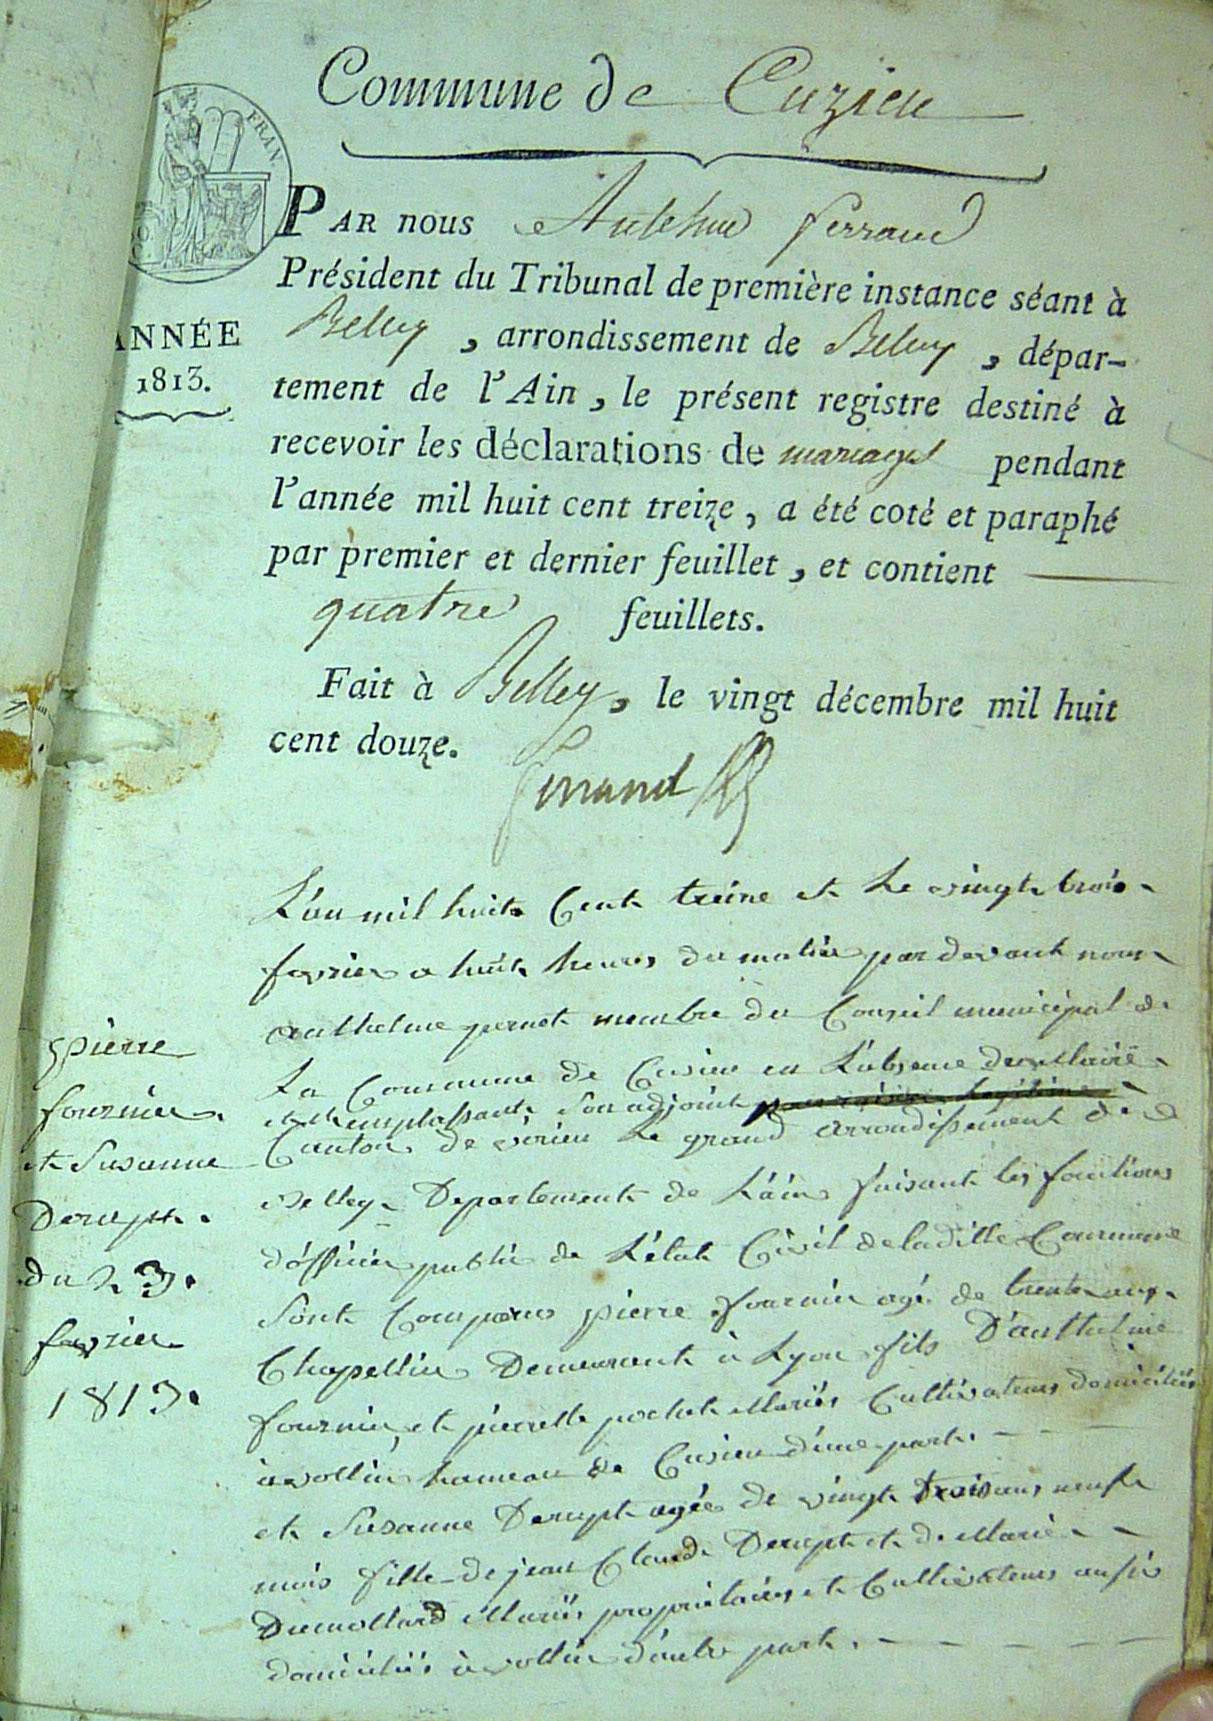 Commune de Cuzieu
FRAN.
PAR nous Anthelme ferrand
Président du Tribunal de première instance séant à
Belley, arrondissement de Belley, dépar-
ANNÉE
1813.
tement de l'Ain, le présent registre destiné à
recevoir les déclarations de mariages pendant
l'année mil huit cent treize, a été coté et paraphé
par premier et dernier feuillet, et contient
quatre feuillets.
Fait à Belley, le vingt décembre mil huit
cent douze.
ferrand
L'an mil huit Cent treize et Le vingt trois
fevrier a huit heures du matin par devant nous
anthelme pernet membre du Conseil municipal de
La Commune de Cusieu en L'absence du Maire
et remplassant Son adjoint
Canton de virieu Le grand arrondissement de
Belley Departement de L'ain faisant les fonctions
d'officier public de L'etat Civil de ladille Commune
Sont Comparus pierre fournier agé de trente ans
Chapellier Demeurant à Lyon fils D'anthelme
fournier et pierrette pochet Mariés Cultivateurs domiciliés
à vollien hameau de Cusieu d'une part.
et Susanne Derupt agée de vingt trois ans neuf
mois fille de jean Claude Derupt et de Marie
Dumollard Mariés propriétaires et Cultivateurs aussi
domiciliés à vollien d'autre part.
pierre
fournier
et Susanne
Derupt.
du 23.
fevrier
1813.